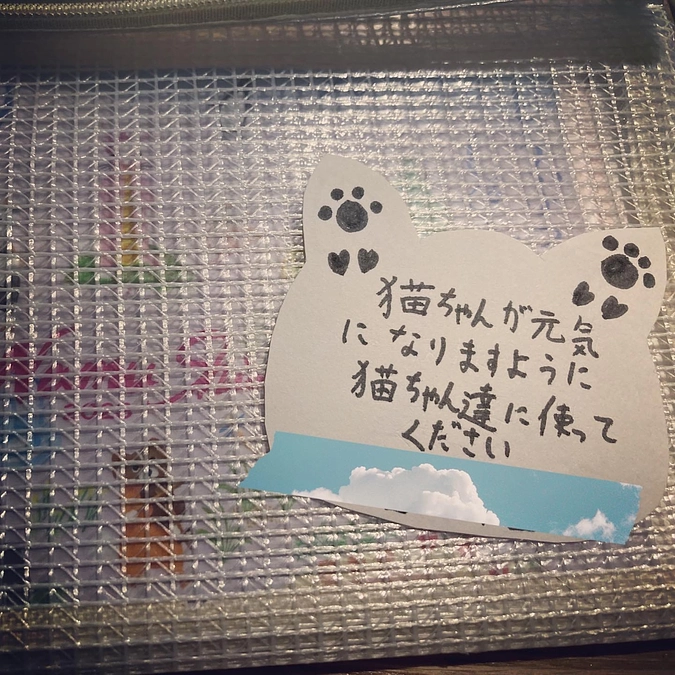 猫ちゃんが元気
になりますように
猫ちゃん達に使って
ください